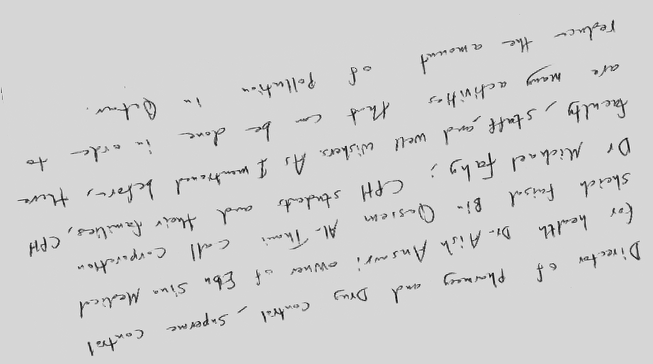 Director of Pharmacy and Drug Control, Supreme Control
for health Dr. Aish Ansari; owner of Ebn Sina Medical
Sheich Faisal Bin Qasiem AL. Thani call Corporation
Dr Michael Fahy; CPH students and their families, CPH
faculty, staff, and well wishers. As I mentioned before, there
are many activities that can be done in order to
reduce the amount of pollution in Qatar.